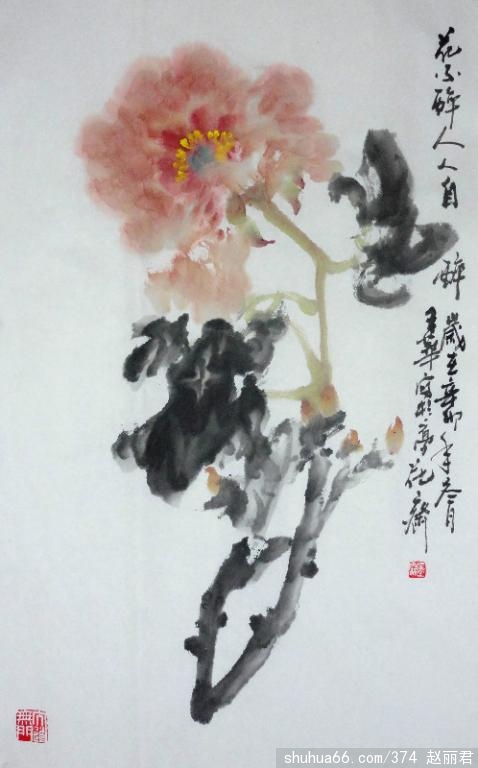 花不醉人人自醉
歲在辛卯年冬月
王華寫於亭花齋
shuhua66.com/374 赵丽君